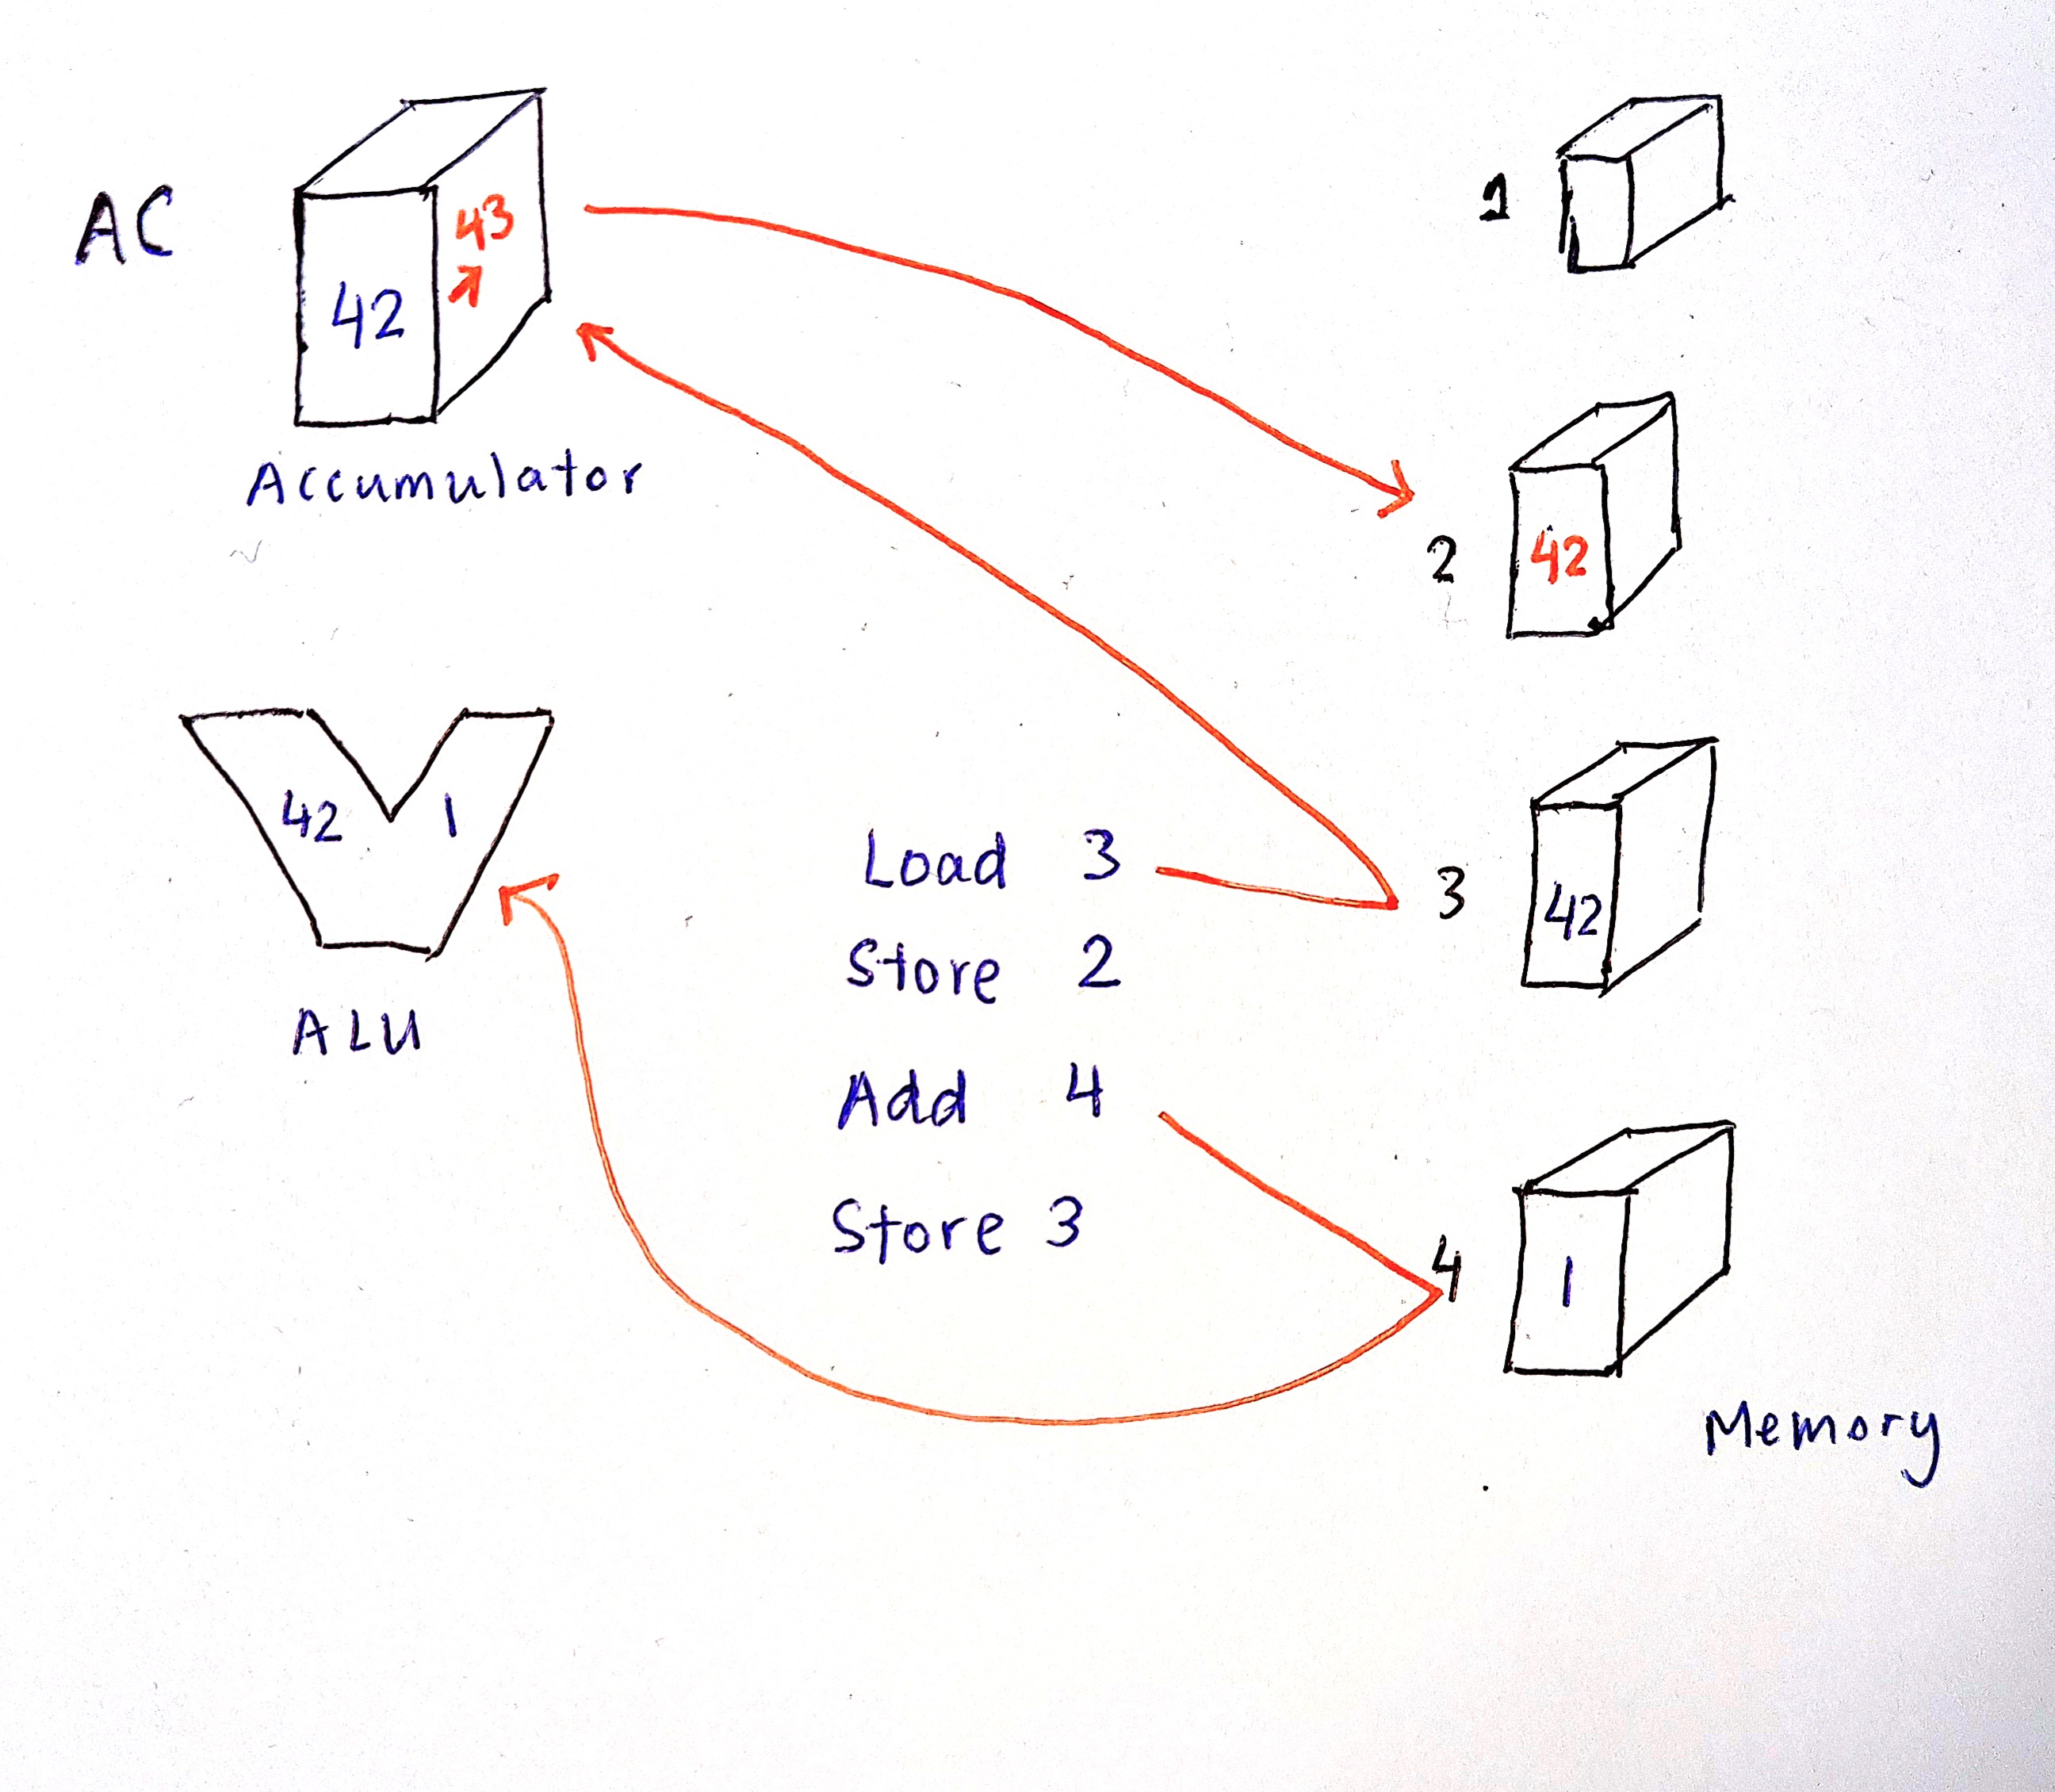 AC
42
43
Accumulator
42 1
ALU
Load 3
Store 2
Add 4
Store 3
1
2
42
3
42
4
1
Memory